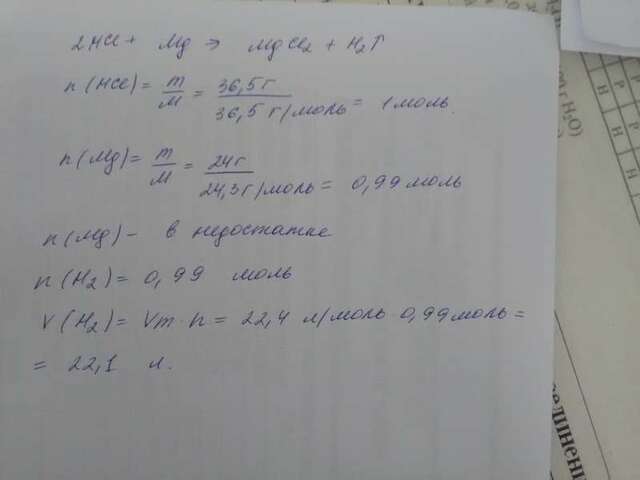 2HCl + Mg → MgCl₂ + H₂↑
n(HCl) = m/M = 36,5г/36,5 г/моль = 1 моль.
n(Mg) = m/M = 24г/24,3г/моль = 0,99 моль
n(Mg) – в недостатке
n(H₂) = 0,99 моль
V(H₂) = Vm · n = 22,4 л/моль · 0,99 моль =
= 22,1 л.
г H₂O)
единени